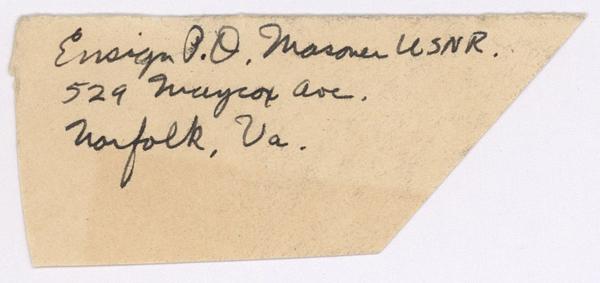 Ensign P.O. Masoner USNR.
529 Maycox Ave.
Norfolk, Va.